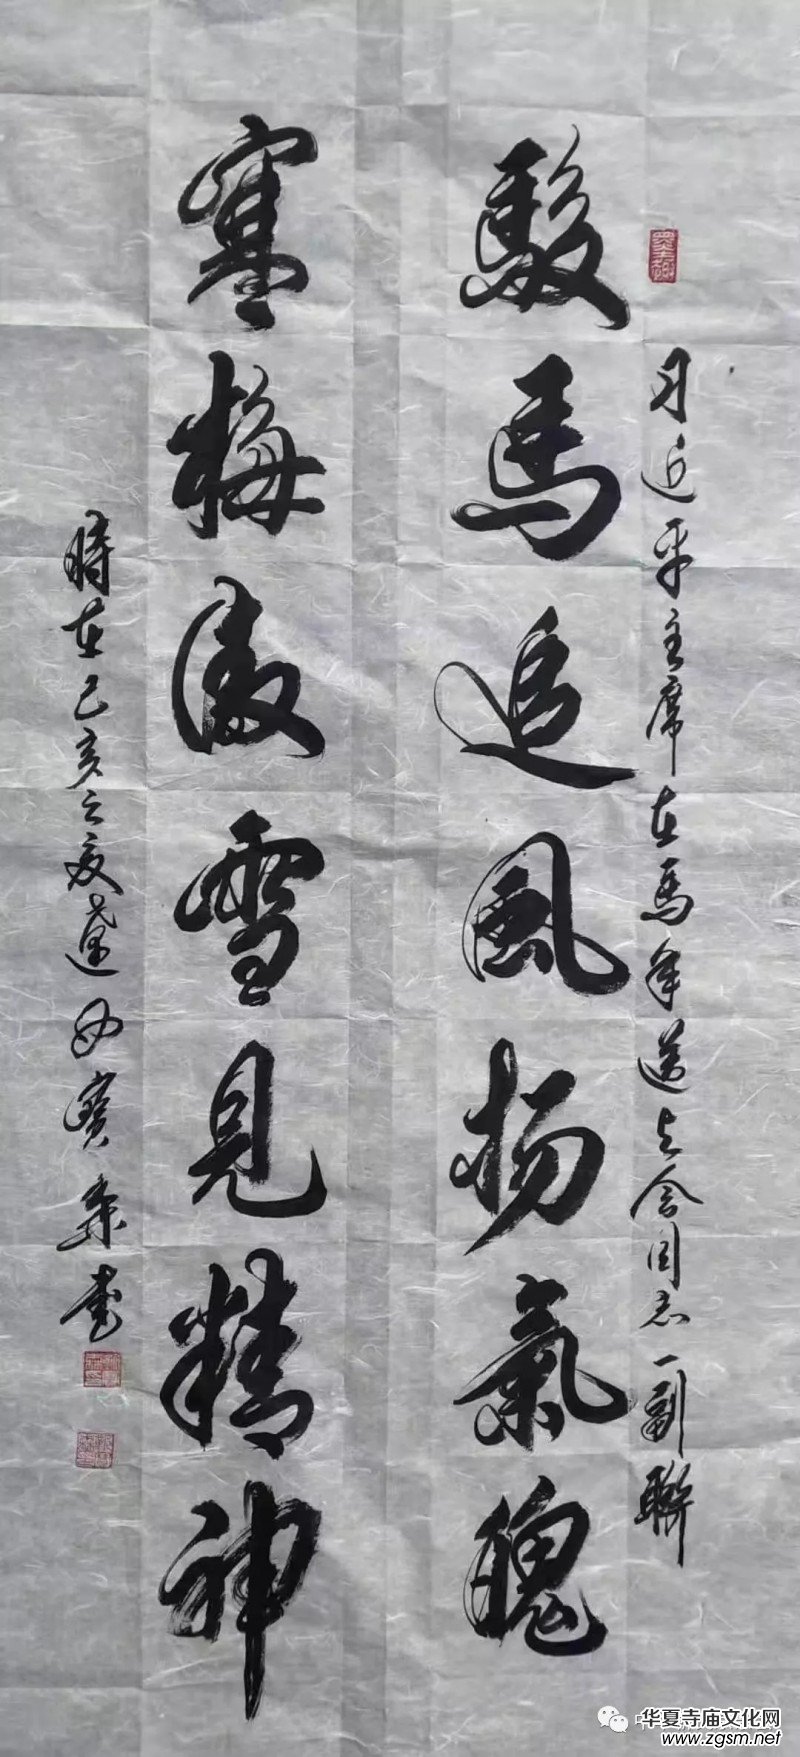 习近平主席在馬年送与会同志一副聯
駿馬追風扬氣魄
寒梅傲雪見精神
時在己亥之夏 寶 書
华夏寺庙文化网
www.zgsm.net